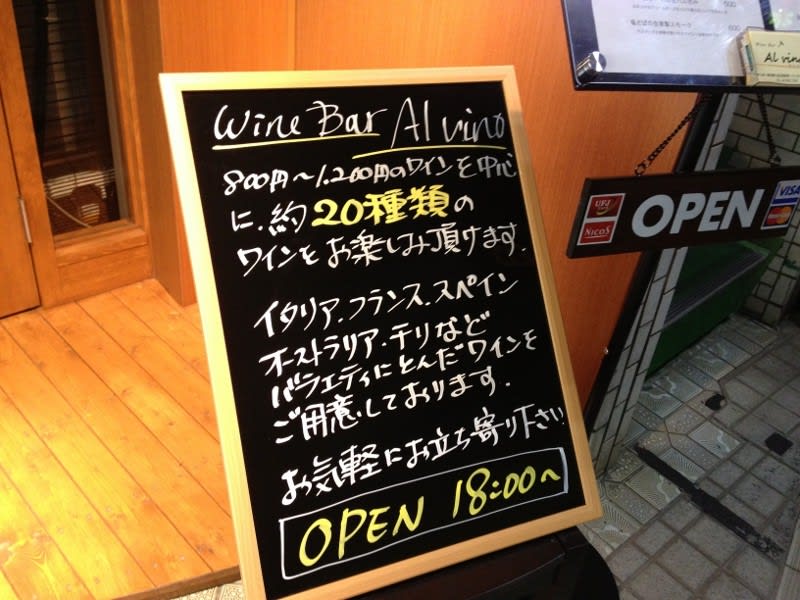 Wine Bar Al vino
800円〜1.200円のワインを中心
に.約20種類の
ワインをお楽しみ頂けます.
イタリア.フランス.スペイン
オーストラリア.チリなど
バラエティにとんだワインを
ご用意しております.
お気軽にお立ち寄り下さい
OPEN 18:00〜
500
600
Wine Bar
Al vino
UFJ
NICOS
OPEN
VISA
MasterCard